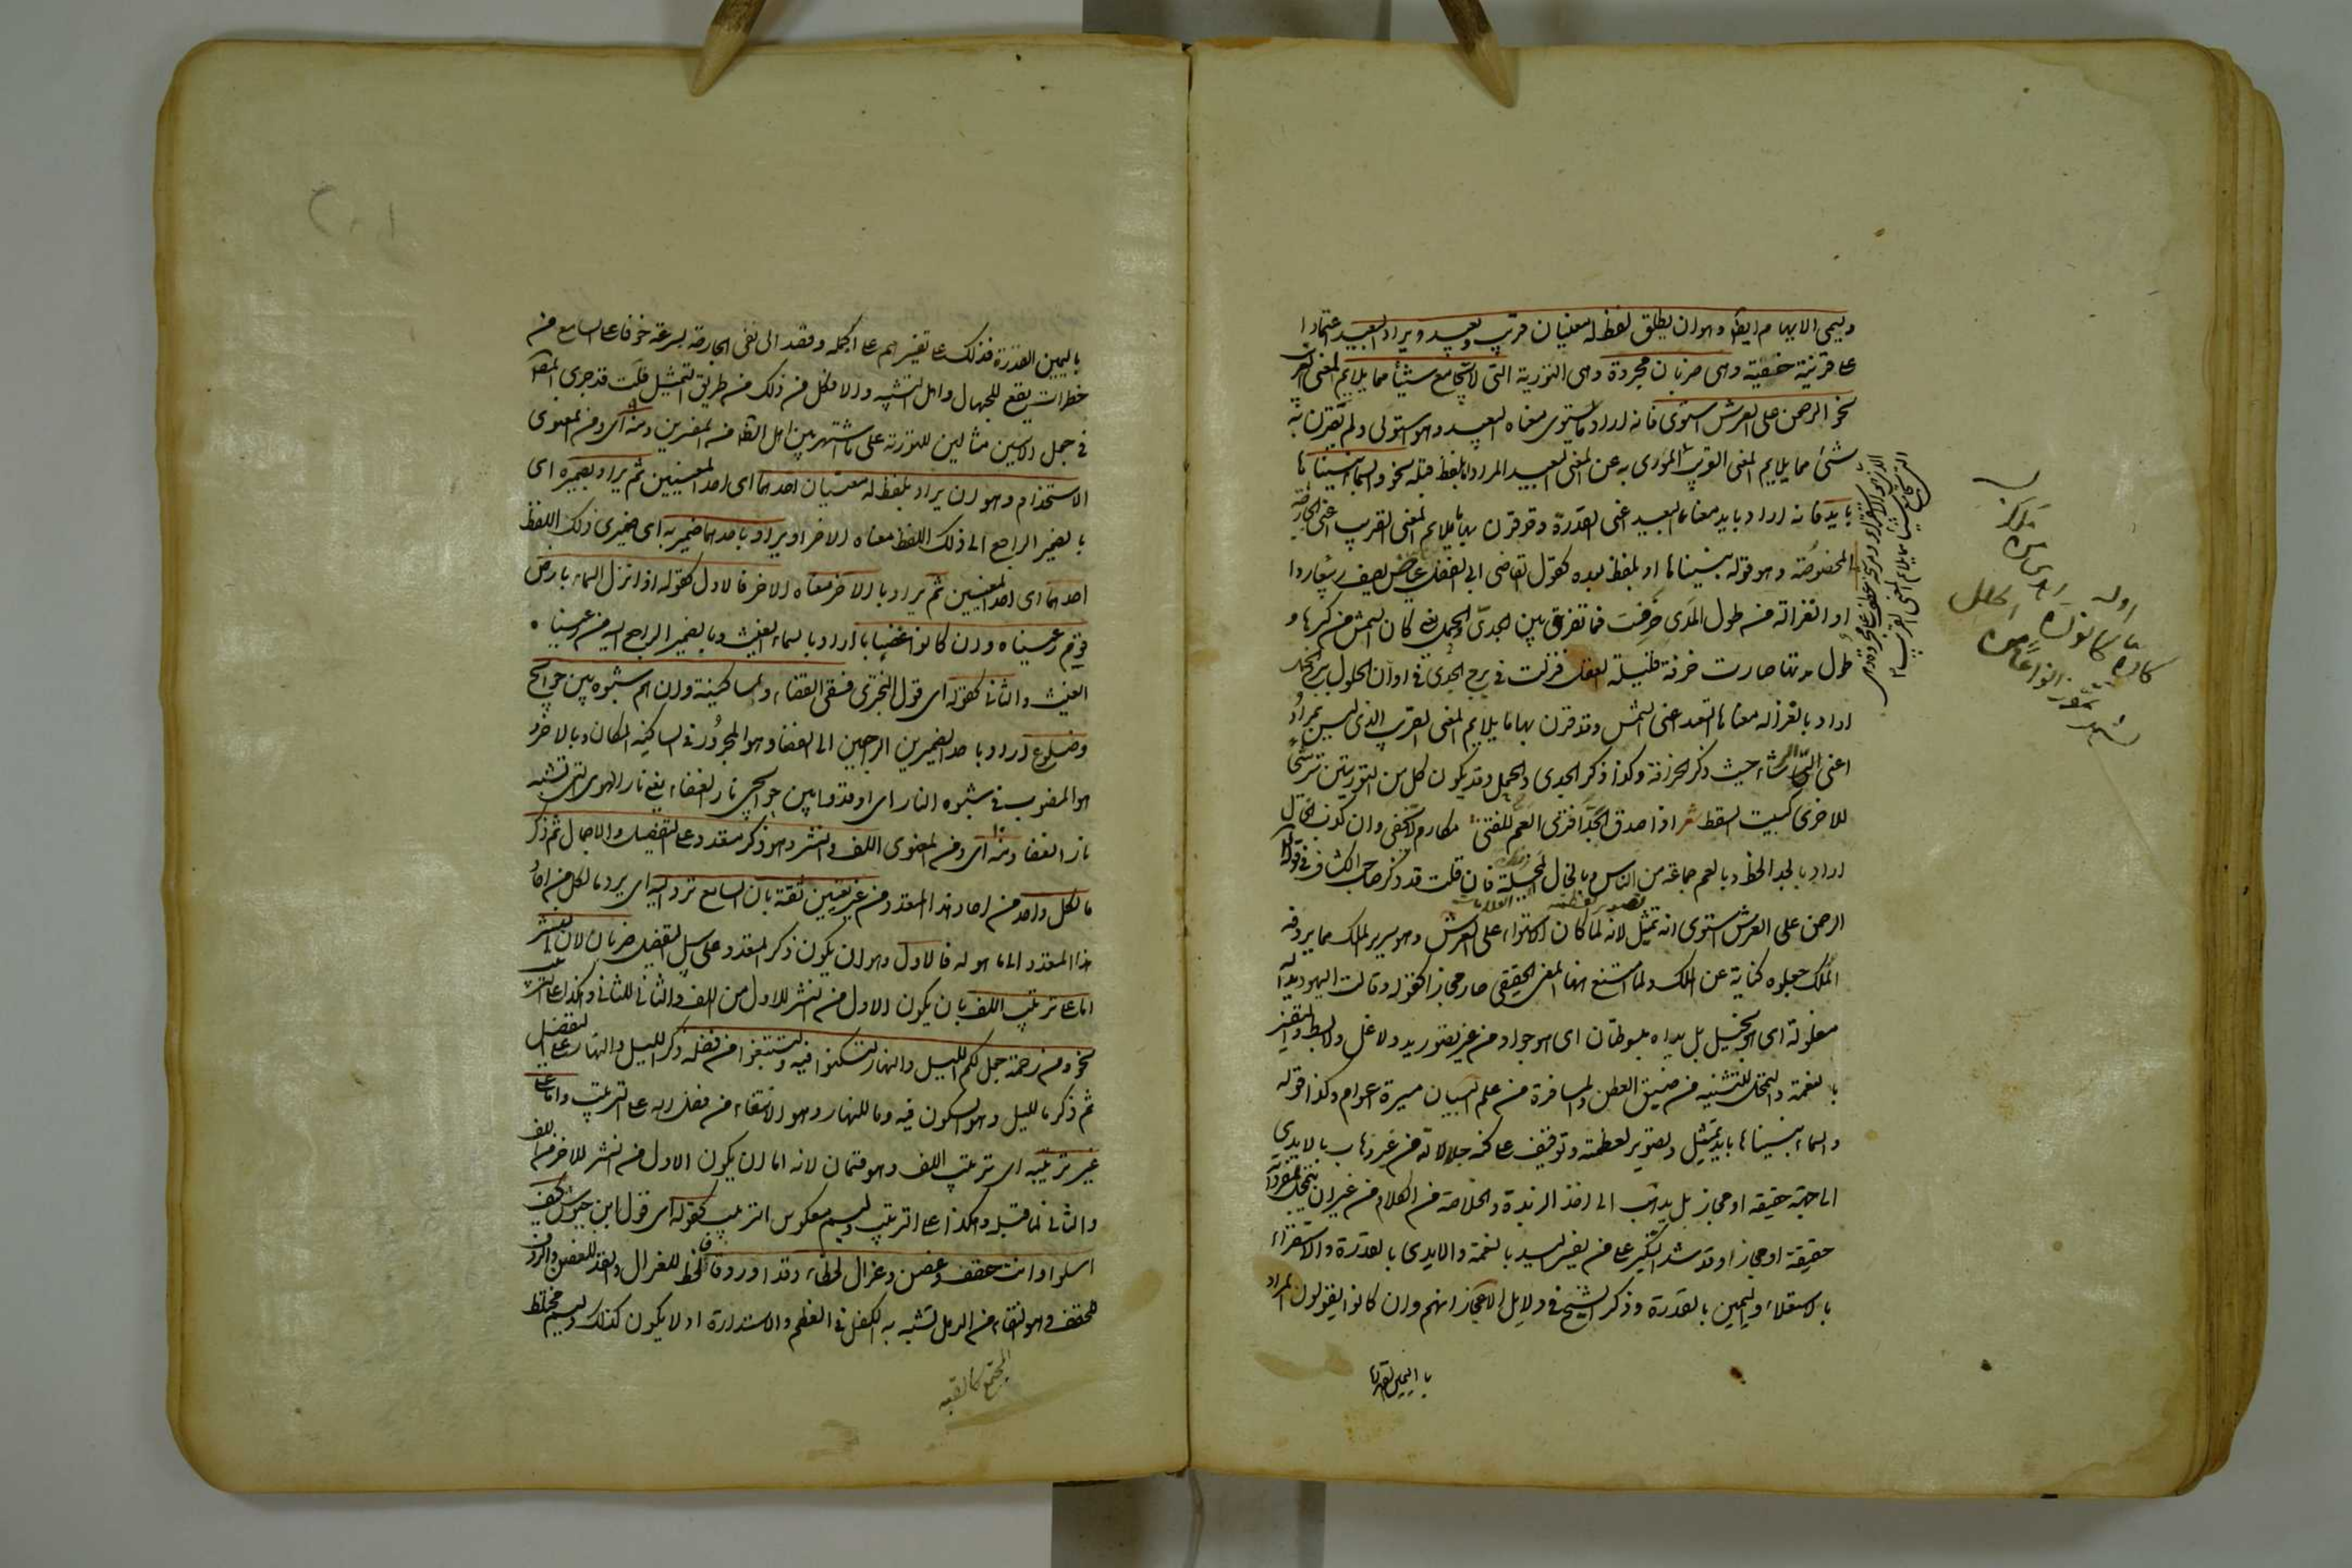 ويسمى الايهام ايضا وهو ان يطلق لفظ له معنيان قريب وبعيد ويراد البعيد اعتمادا
على قرينة خفية وهى ضربان مجردة وهى التورية التى لا تجامع شيئا مما يلايم المعنى القريب
نحو الرحمن على العرش استوى فانه اراد باستوى معناه البعيد وهو استولى ولم يقرن به
شئ مما يلايم المعنى القريب المورى به عن المعنى البعيد المراد اما بلفظ قبله نحو والسماء بنيناها
بايد فانه اراد بايد معناها البعيد اعنى القدرة وقد قرن بها ما يلايم المعنى القريب اعنى الجارحة
المخصوصة وهو قوله بنيناها او بلفظ بعده كقول القاضى ابى الفضل عياض يصف ربيعا باردا
او الغزالة من طول المدى خرفت فما تفرق بين الجدى والحمل يعنى كان الشمس من كبرها و
طول مدتها صارت خرفة قليلة العقل فنزلت فى برج الجدى فى اوان الحلول ببرج الحمل
اراد بالغزالة معناها البعيد اعنى الشمس وقد قرن بها ما يلايم المعنى القريب الذى ليس بمراد
اعنى الرشاء حيث ذكر الخرافة وكذا ذكر الجدى والحمل وقد يكون كل من التوريتين ترشيحا
للاخرى كبيت السقط شعر اذا صدق الجد افترى العم للفتى مكارم لا تخفى وان كذب الخال
اراد بالجد الحظ وبالعم جماعة من الناس وبالخال المخيلة فان قلت قد ذكر صاحب الكشاف فى قوله تعالى
الرحمن على العرش استوى انه تمثيل لانه لما كان الاستواء على العرش وهو سرير الملك مما يردف
الملك جعلوه كناية عن الملك ولما امتنع ههنا المعنى الحقيقى صار مجازا كقوله وقالت اليهود يد الله
مغلولة اى هو بخيل بل يداه مبسوطتان اى هو جواد من غير تصور يد ولا غل ولا بسط والتفسير
بالنعمة والتمحل للتثنية من ضيق العطن والمسافرة من علم البيان مسيرة اعوام وكذا قوله
والسماء بنيناها بايد تمثيل وتصوير لعظمته وتوقيف على كنه جلاله من غير ذهاب بالايدى
الى جهة حقيقة او مجاز بل يذهب الى اخذ الزبدة والخلاصة من الكلام من غير ان يتمحل لمفرداته
حقيقة او مجازا وقد شدد النكير على من يفسر اليد بالنعمة والايدى بالقدرة والاستواء
بالاستيلاء واليمين بالقدرة وذكر الشيخ فى دلايل الاعجاز انهم وان كانوا يقولون المراد
باليمين القدرة
باليمين القدرة فذلك تفسير منهم على الجملة وقصد الى نفى الجارحة بسرعة خوفا على السامع من
خطرات يقع للجهال واهل التشبيه والا فكل من ذلك من طريق التمثيل قلت قد جرى المصنف
فى جعل الايتين مثالين للتورية على ما اشتهر بين اهل الظاهر من المفسرين ومنه اى ومن المعنوى
الاستخدام وهو ان يراد بلفظ له معنيان احدهما اى احد المعنيين ثم يراد بضميره اى
بالضمير الراجع الى ذلك اللفظ معناه الاخر او يراد باحد ضميريه اى ضميرى ذلك اللفظ
احدهما اى احد المعنيين ثم يراد بالاخر معناه الاخر فالاول كقوله اذا نزل السماء بارض
قوم رعيناه وان كانوا غضبا با اراد بالسماء الغيث وبالضمير الراجع اليه من رعيناه
الغيث والثانى كقوله اى قول البحترى فسقى الغضاء والساكنيه وان هم شبوه بين جوانح
وضلوع اراد باحد الضميرين الراجعين الى الغضا وهو المجرور فى الساكنيه المكان وبالاخر و
هو المنصوب فى شبوه النار اى اوقدوا بين جوانحى نار الغضاء يعنى نار الهوى التى تشبه
نار الغضا ومنه اى ومن المعنوى اللف والنشر وهو ذكر متعدد على التفصيل والاجمال ثم ذكر
ما لكل واحد من احاد هذا المتعدد من غير تعيين ثقة بان السامع يرده اليه اى يرد ما لكل من احاد
هذا المتعدد الى ما هو له فالاول وهو ان يكون ذكر المتعدد على سبيل التفصيل ضربان لان النشر
اما على ترتيب اللف بان يكون الاول من النشر للاول من اللف والثانى للثانى وهكذا على الترتيب
نحو ومن رحمته جعل لكم الليل والنهار لتسكنوا فيه ولتبتغوا من فضله ذكر الليل والنهار على التفصيل
ثم ذكر ما لليل وهو السكون فيه وما للنهار وهو الابتغاء من فضل الله على الترتيب واما على
غير ترتيبه اى ترتيب اللف وهو قسمان لانه اما ان يكون الاول من النشر للاخر من اللف
والثانى لما قبله وهكذا على الترتيب وليسم معكوس الترتيب كقوله اى قول ابن حيوش كيف
اسلوا وانت حقف وغصن وغزال لحظا وقدا وردفا فاللحظ للغزال والقد للغصن والردف
للحقف وهو النقاء من الرمل تشبه به الكفل فى العظم والاستدارة او لا يكون كذلك وليسم مختلط